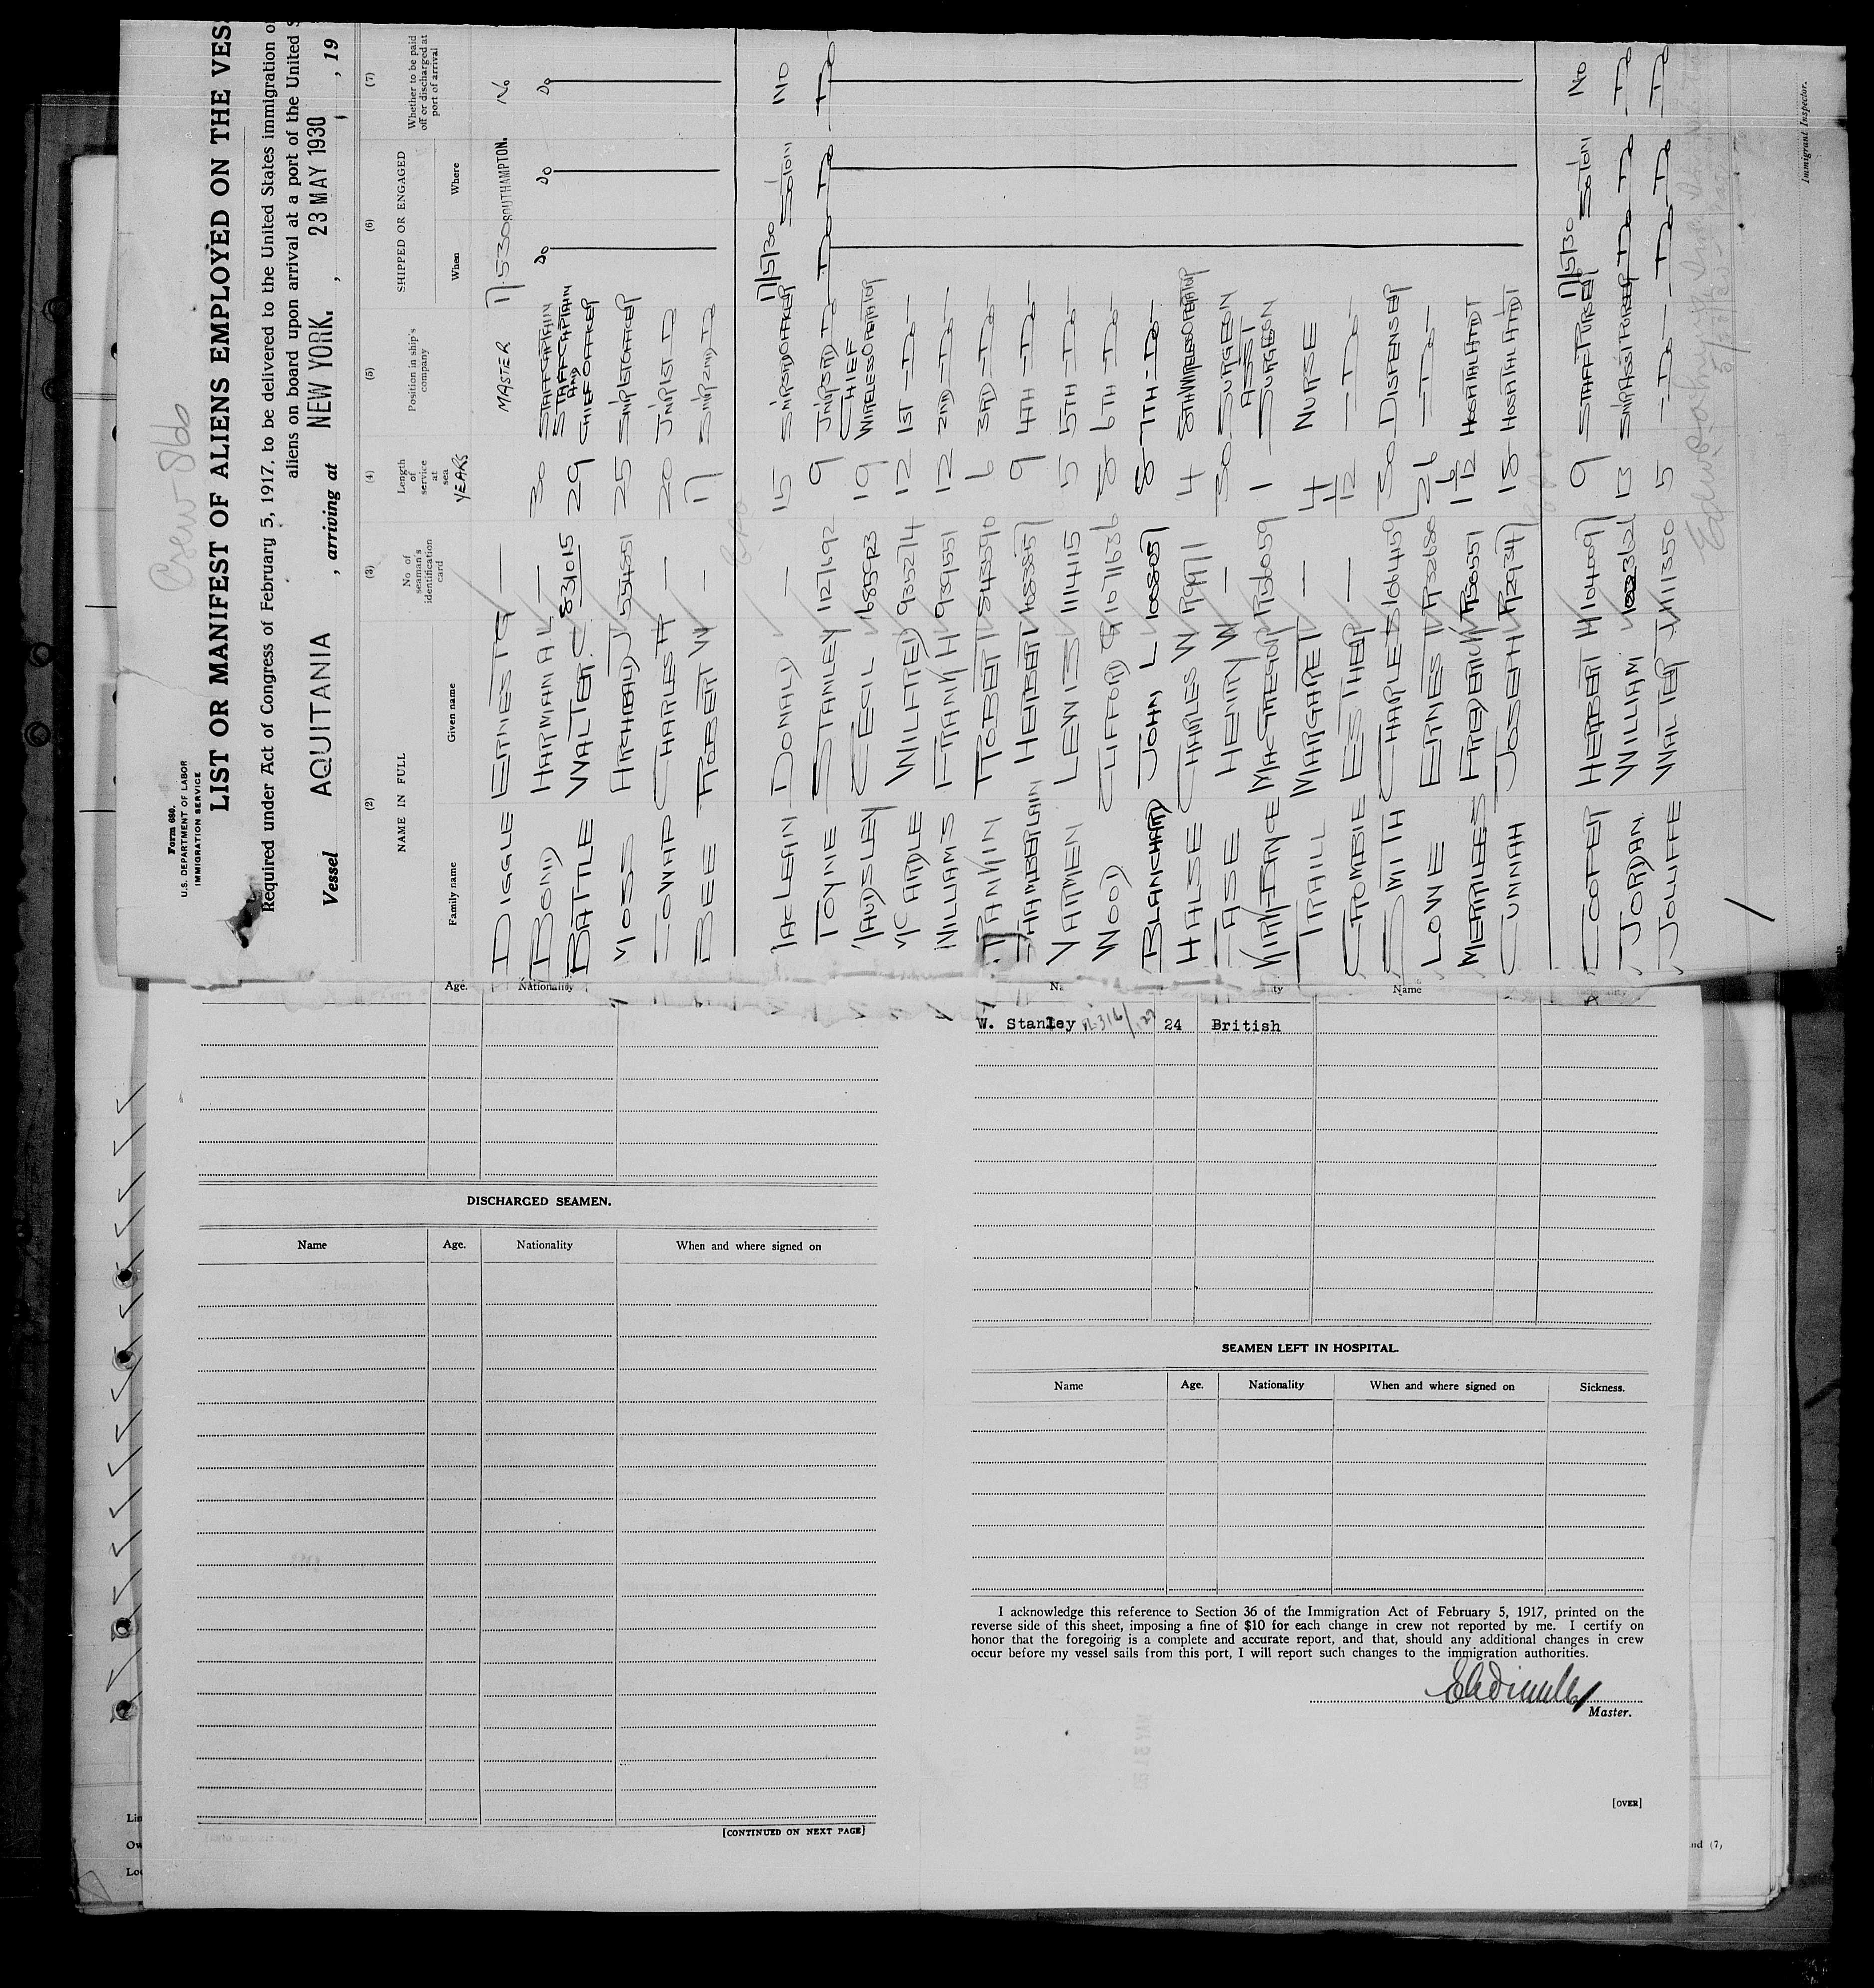 Form 680.
U.S. DEPARTMENT OF LABOR
IMMIGRATION SERVICE
LIST OR MANIFEST OF ALIENS EMPLOYED ON THE VES
Required under Act of Congress of February 5, 1917, to be delivered to the United States immigration o
aliens on board upon arrival at a port of the United S
Vessel AQUITANIA, arriving at NEW YORK., 23 MAY 1930, 19
(2) (3) (4) (5) (6) (7)
NAME IN FULL
Family name Given name
No of seaman's identification card
Length of service at sea
YEARS
Position in ship's company
SHIPPED OR ENGAGED
When Where
Whether to be paid off or discharged at port of arrival
DIGGLE ERNEST G — MASTER 17/5/30 SOUTHAMPTON. No
BOND HARMAN A L — 30 STAFF CAPTAIN DO DO DO
BATTLE WALTER C 831015 29 STAFF CAPTAIN AND CHIEF OFFICER
MOSS ARCHIBALD J 554551 25 SNR 1ST OFFICER
CHARLES A — 20 JNR 1ST DO
BEE ROBERT W — 17 SNR 2ND DO
MACLEAN DONALD — 15 SNR 3RD OFFICER 17/5/30 SOTON NO
TOYNE STANLEY 1127692 9 JNR 3RD DO DO DO DO
CECIL 685923 19 CHIEF WIRELESS OPERATOR
MCARDLE WILFRED 935274 12 1ST — DO —
WILLIAMS FRANK H 939551 12 2ND — DO —
RANKIN ROBERT 6 3RD — DO —
CHAMBERLAIN HERBERT 9 4TH — DO —
YARMEN LEWIS 1114115 5 5TH — DO —
WOOD CLIFFORD G 1071636 8 6TH — DO —
BLANCHARD JOHN L 8 7TH — DO —
HALSE CHARLES W 4 8TH WIRELESS OPERATOR
CASE HENRY W — 30 SURGEON
MACGREGOR 1 ASST SURGEON
TRAILL MARGARET — 4 NURSE
CROMBIE ESTHER — — DO —
SMITH CHARLES 30 DISPENSER
LOWE ERNEST 26 — DO —
MERRILEES FREDERICK HOSPITAL ATTDT
CUNNAH JOSEPH 18 HOSPITAL ATTDT
COOPER HERBERT H 1014097 9 STAFF PURSER 17/5/30 SOTON NO
JORDAN. WILLIAM 13 SNR ASST PURSER DO DO DO
JOLLIFFE WALTER J 1111350 5 — DO — DO DO DO
Immigrant Inspector.
Age. Nationality
Name
W. Stanley 24 British
DISCHARGED SEAMEN.
Name Age. Nationality When and where signed on
[CONTINUED ON NEXT PAGE]
SEAMEN LEFT IN HOSPITAL.
Name Age. Nationality When and where signed on Sickness.
I acknowledge this reference to Section 36 of the Immigration Act of February 5, 1917, printed on the
reverse side of this sheet, imposing a fine of $10 for each change in crew not reported by me. I certify on
honor that the foregoing is a complete and accurate report, and that, should any additional changes in crew
occur before my vessel sails from this port, I will report such changes to the immigration authorities.
Master.
[OVER]
nd (7)